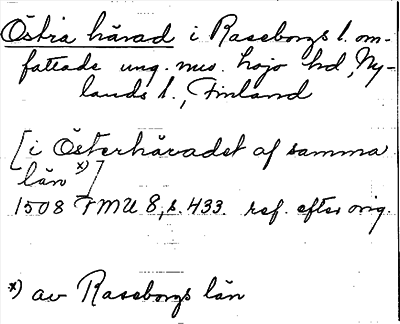 Östra härad i Raseborgs l. om-
fattade ung. nuv. Lojo hd, Ny-
lands l., Finland
[i Österhäradet af samma
län x)]
1508 FMU 8, s. 433. ref. efter orig.
x) av Raseborgs län